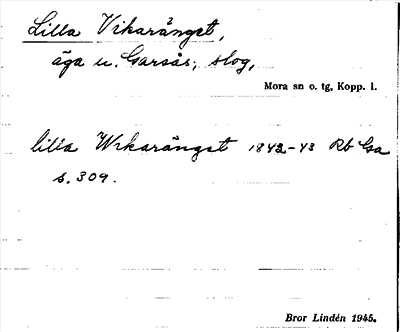 Lilla Vikaränget,
äga u. Garsås; slog,
Mora sn o. tg, Kopp. l.
lilla Wikaränget 1842-43 Rb Ga
s. 309.
Bror Lindén 1945.